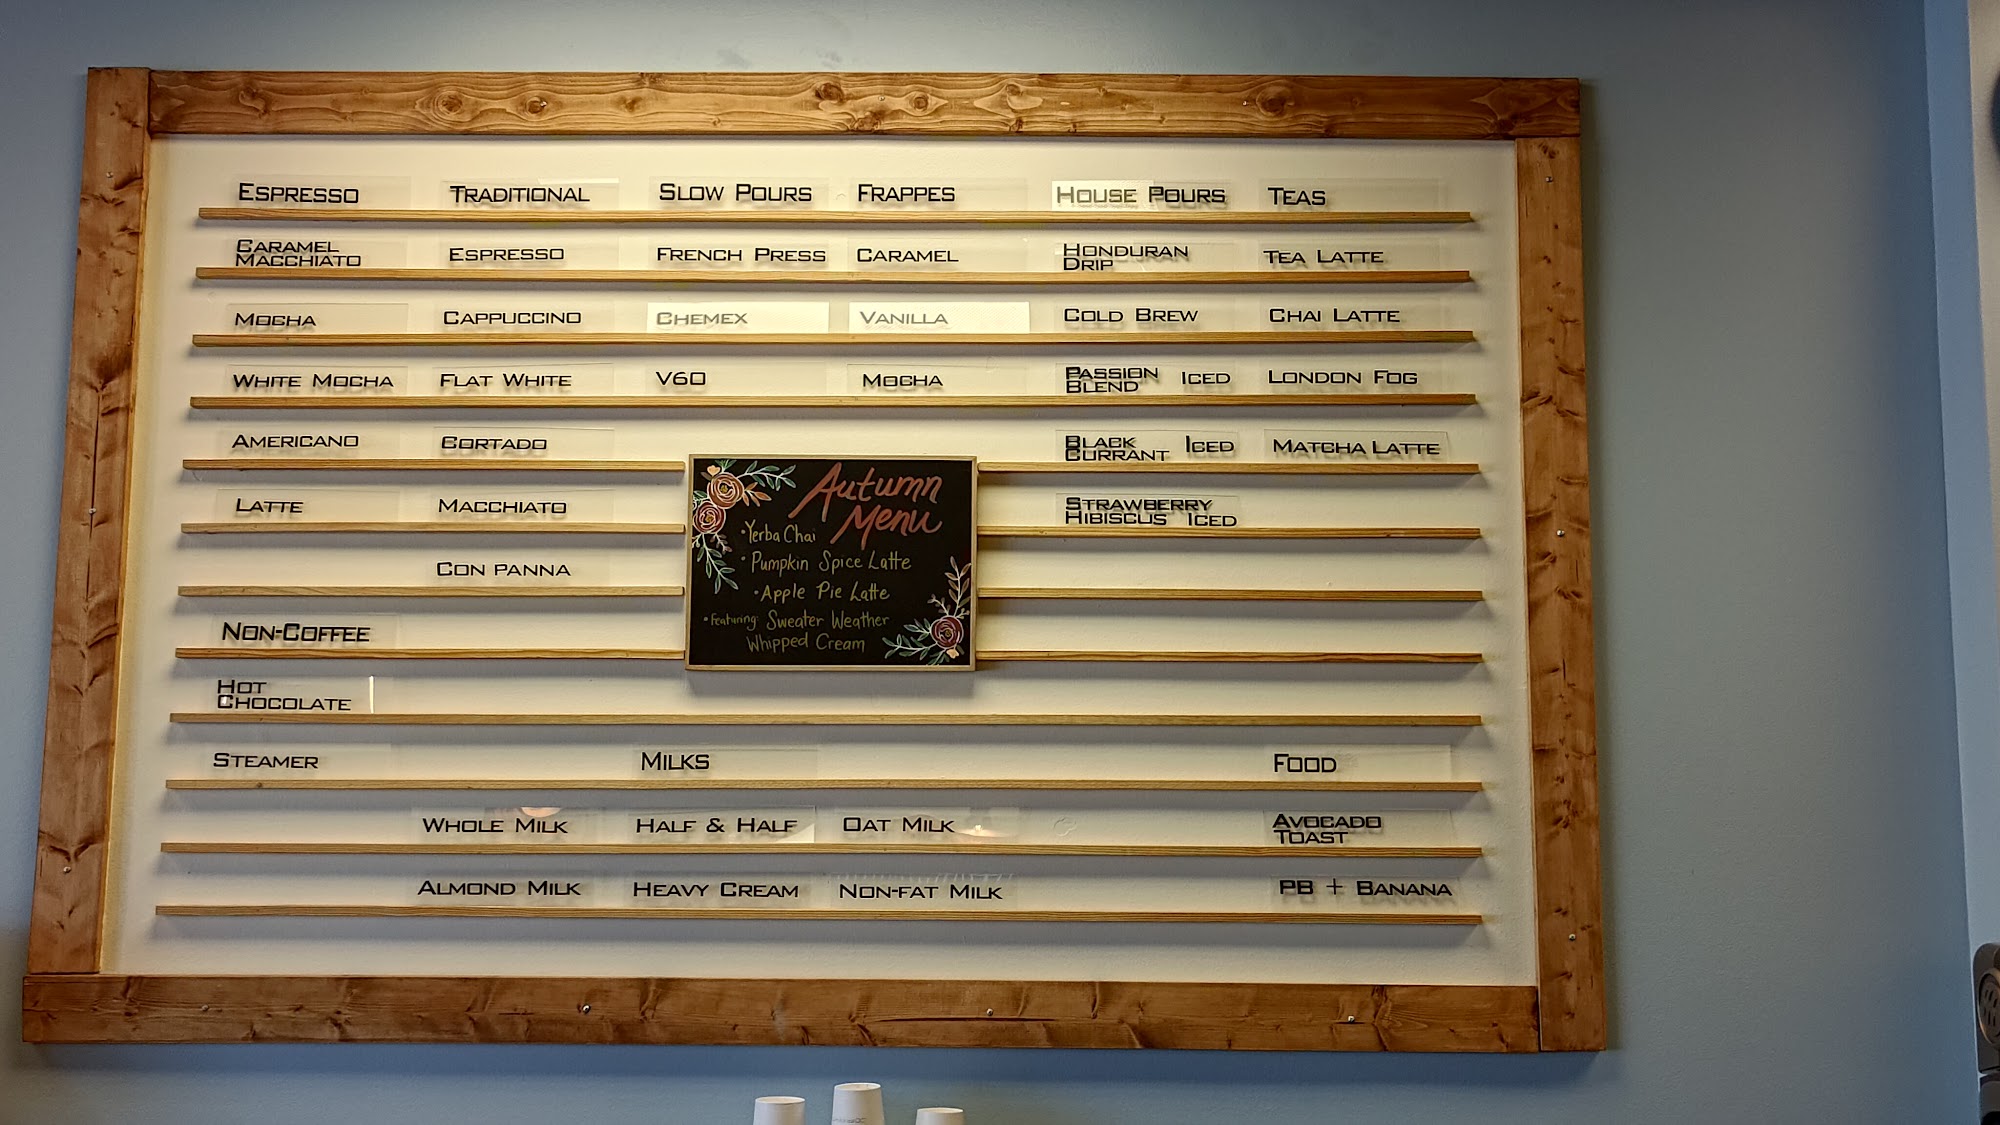 ESPRESSO
TRADITIONAL
SLOW POURS
FRAPPES
HOUSE POURS
TEAS
CARAMEL
MACCHIATO
ESPRESSO
FRENCH PRESS
CARAMEL
HONDURAN
DRIP
TEA LATTE
MOCHA
CAPPUCCINO
CHEMEX
VANILLA
COLD BREW
CHAI LATTE
WHITE MOCHA
FLAT WHITE
V60
MOCHA
PASSION
BLEND ICED
LONDON FOG
AMERICANO
CORTADO
BLACK
CURRANT ICED
MATCHA LATTE
LATTE
MACCHIATO
STRAWBERRY
HIBISCUS ICED
CON PANNA
Autumn
Menu
• Yerba Chai
• Pumpkin Spice Latte
• Apple Pie Latte
• Featuring: Sweater Weather
Whipped Cream
NON-COFFEE
HOT
CHOCOLATE
STEAMER
MILKS
FOOD
WHOLE MILK
HALF & HALF
OAT MILK
AVOCADO
TOAST
ALMOND MILK
HEAVY CREAM
NON-FAT MILK
PB + BANANA